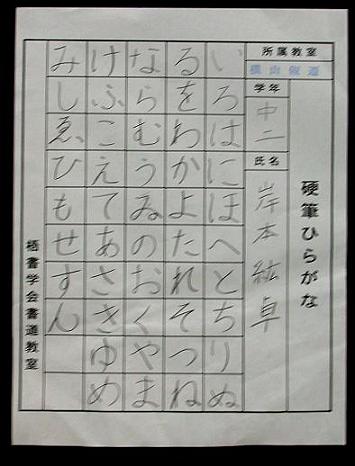 硬筆ひらがな
所属教室
学年
中二
氏名
岸本紘卓
いろはにほへとちりぬ
るをわかよたれそつね
ならむうゐのおくやま
けふこえてあさきゆめ
みしゑひもせすん
栖書学会書道教室